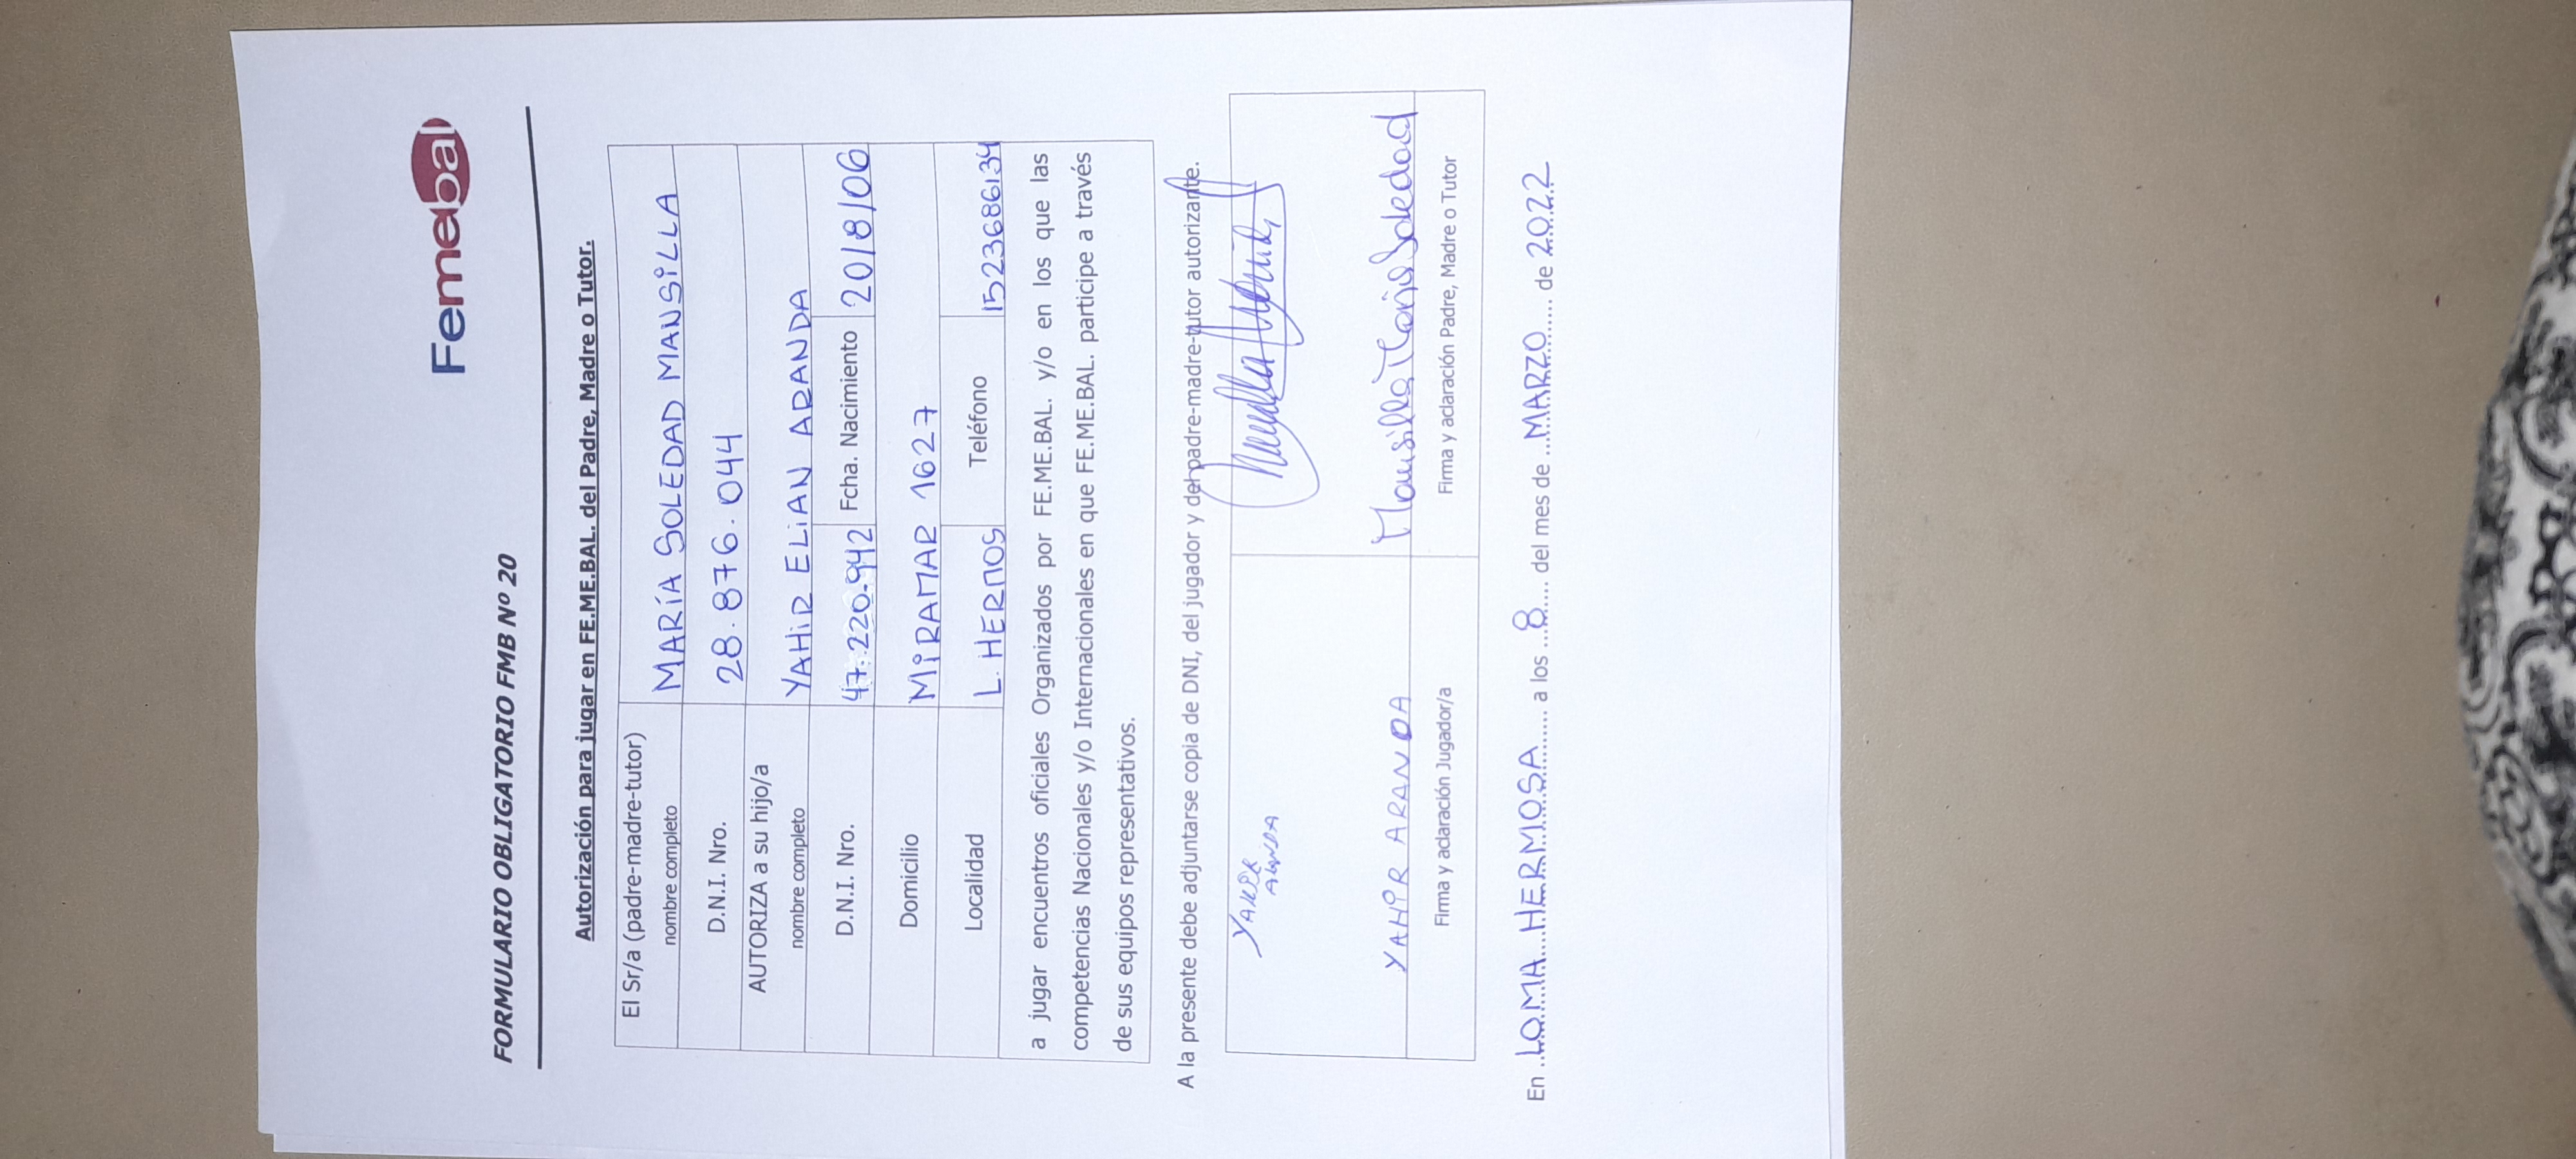 Femebal
FORMULARIO OBLIGATORIO FMB Nº 20
Autorización para jugar en FE.ME.BAL. del Padre, Madre o Tutor.
El Sr/a (padre-madre-tutor)
nombre completo MARÍA SOLEDAD MANSILLA
D.N.I. Nro. 28.876.044
AUTORIZA a su hijo/a
nombre completo YAHIR ELIAN ARANDA
D.N.I. Nro. 47.220.942 Fcha. Nacimiento 20/8/06
Domicilio MIRAMAR 1627
Localidad L. HERMOS Teléfono 1523686134
a jugar encuentros oficiales Organizados por FE.ME.BAL. y/o en los que las
competencias Nacionales y/o Internacionales en que FE.ME.BAL. participe a través
de sus equipos representativos.
A la presente debe adjuntarse copia de DNI, del jugador y del padre-madre-tutor autorizante.
YAHIR ARANDA Mansilla María Soledad
Firma y aclaración Jugador/a Firma y aclaración Padre, Madre o Tutor
En LOMA HERMOSA a los 8 del mes de MARZO de 2022